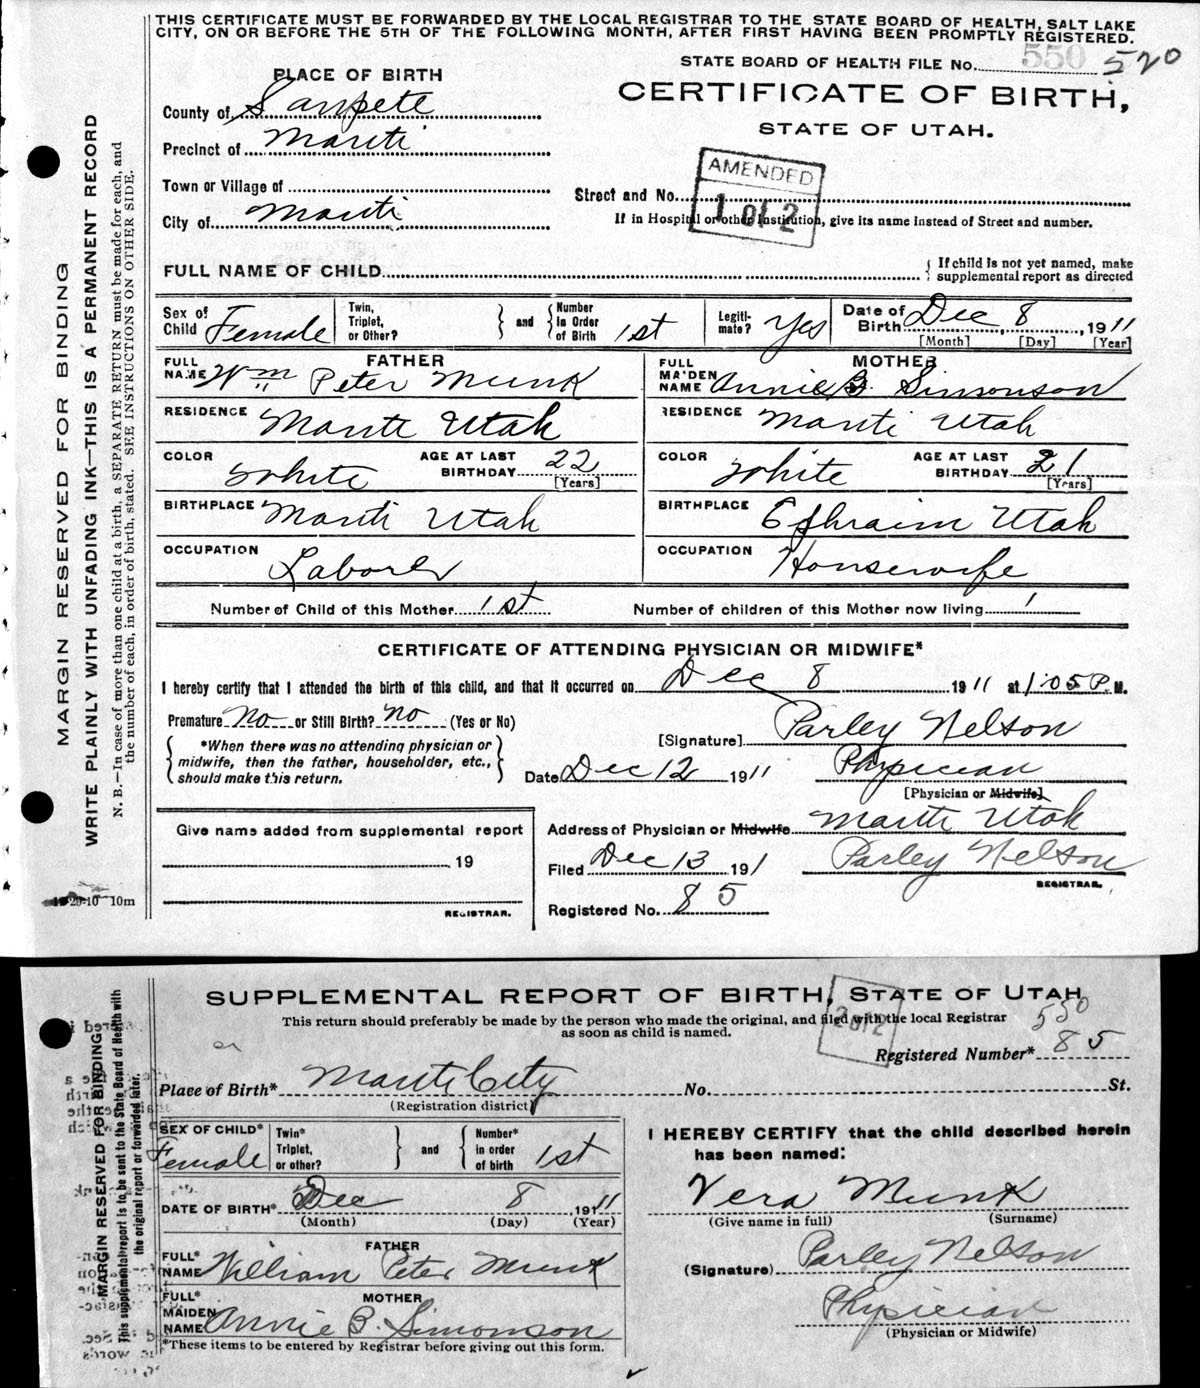 THIS CERTIFICATE MUST BE FORWARDED BY THE LOCAL REGISTRAR TO THE STATE BOARD OF HEALTH, SALT LAKE
CITY, ON OR BEFORE THE 5TH OF THE FOLLOWING MONTH, AFTER FIRST HAVING BEEN PROMPTLY REGISTERED.
STATE BOARD OF HEALTH FILE No. 550 520
PLACE OF BIRTH
CERTIFICATE OF BIRTH,
STATE OF UTAH.
County of Sanpete
Precinct of Manti
Town or Village of
City of Manti
AMENDED
1 of 2
Street and No.
If in Hospital or other Institution, give its name instead of Street and number.
FULL NAME OF CHILD
{ If child is not yet named, make
supplemental report as directed
Sex of Child Female
Twin, Triplet, or Other? } and { Number in Order of Birth 1st
Legiti-mate? Yes
Date of Birth Dec 8, 1911
[Month] [Day] [Year]
FATHER
FULL NAME Wm Peter Munk
RESIDENCE Manti Utah
COLOR White AGE AT LAST BIRTHDAY 22
[Years]
BIRTHPLACE Manti Utah
OCCUPATION Laborer
MOTHER
FULL MAIDEN NAME Annie B. Simonson
RESIDENCE Manti Utah
COLOR White AGE AT LAST BIRTHDAY 21
[Years]
BIRTHPLACE Ephraim Utah
OCCUPATION Housewife
Number of Child of this Mother 1st Number of children of this Mother now living 1
CERTIFICATE OF ATTENDING PHYSICIAN OR MIDWIFE*
I hereby certify that I attended the birth of this child, and that it occurred on Dec 8 1911 at 1:05 P.M.
Premature No or Still Birth? No (Yes or No)
*When there was no attending physician or
midwife, then the father, householder, etc.,
should make this return.
[Signature] Parley Nelson
Date Dec 12 1911 Physician
[Physician or Midwife]
Give name added from supplemental report
19
REGISTRAR.
Address of Physician or Midwife Manti Utah
Filed Dec 13 191 Parley Nelson
REGISTRAR.
Registered No. 85
MARGIN RESERVED FOR BINDING
WRITE PLAINLY WITH UNFADING INK—THIS IS A PERMANENT RECORD
N. B.—In case of more than one child at a birth, a SEPARATE RETURN must be made for each, and
the number of each, in order of birth, stated. SEE INSTRUCTIONS ON OTHER SIDE.
29-10 10m
SUPPLEMENTAL REPORT OF BIRTH, STATE OF UTAH
This return should preferably be made by the person who made the original, and filed with the local Registrar
as soon as child is named.
2 of 2
550
Registered Number* 85
Place of Birth* Manti City No. St.
(Registration district)
SEX OF CHILD* Female
Twin* Triplet, or other? } and { Number* in order of birth 1st
DATE OF BIRTH* Dec 8, 1911
(Month) (Day) (Year)
FATHER
FULL* NAME William Peter Munk
MOTHER
FULL* MAIDEN NAME Annie B. Simonson
*These items to be entered by Registrar before giving out this form.
I HEREBY CERTIFY that the child described herein
has been named:
Vera Munk
(Give name in full) (Surname)
(Signature) Parley Nelson
Physician
(Physician or Midwife)
MARGIN RESERVED FOR BINDING
This supplemental report is to be sent to the State Board of Health with
the original report or forwarded later.